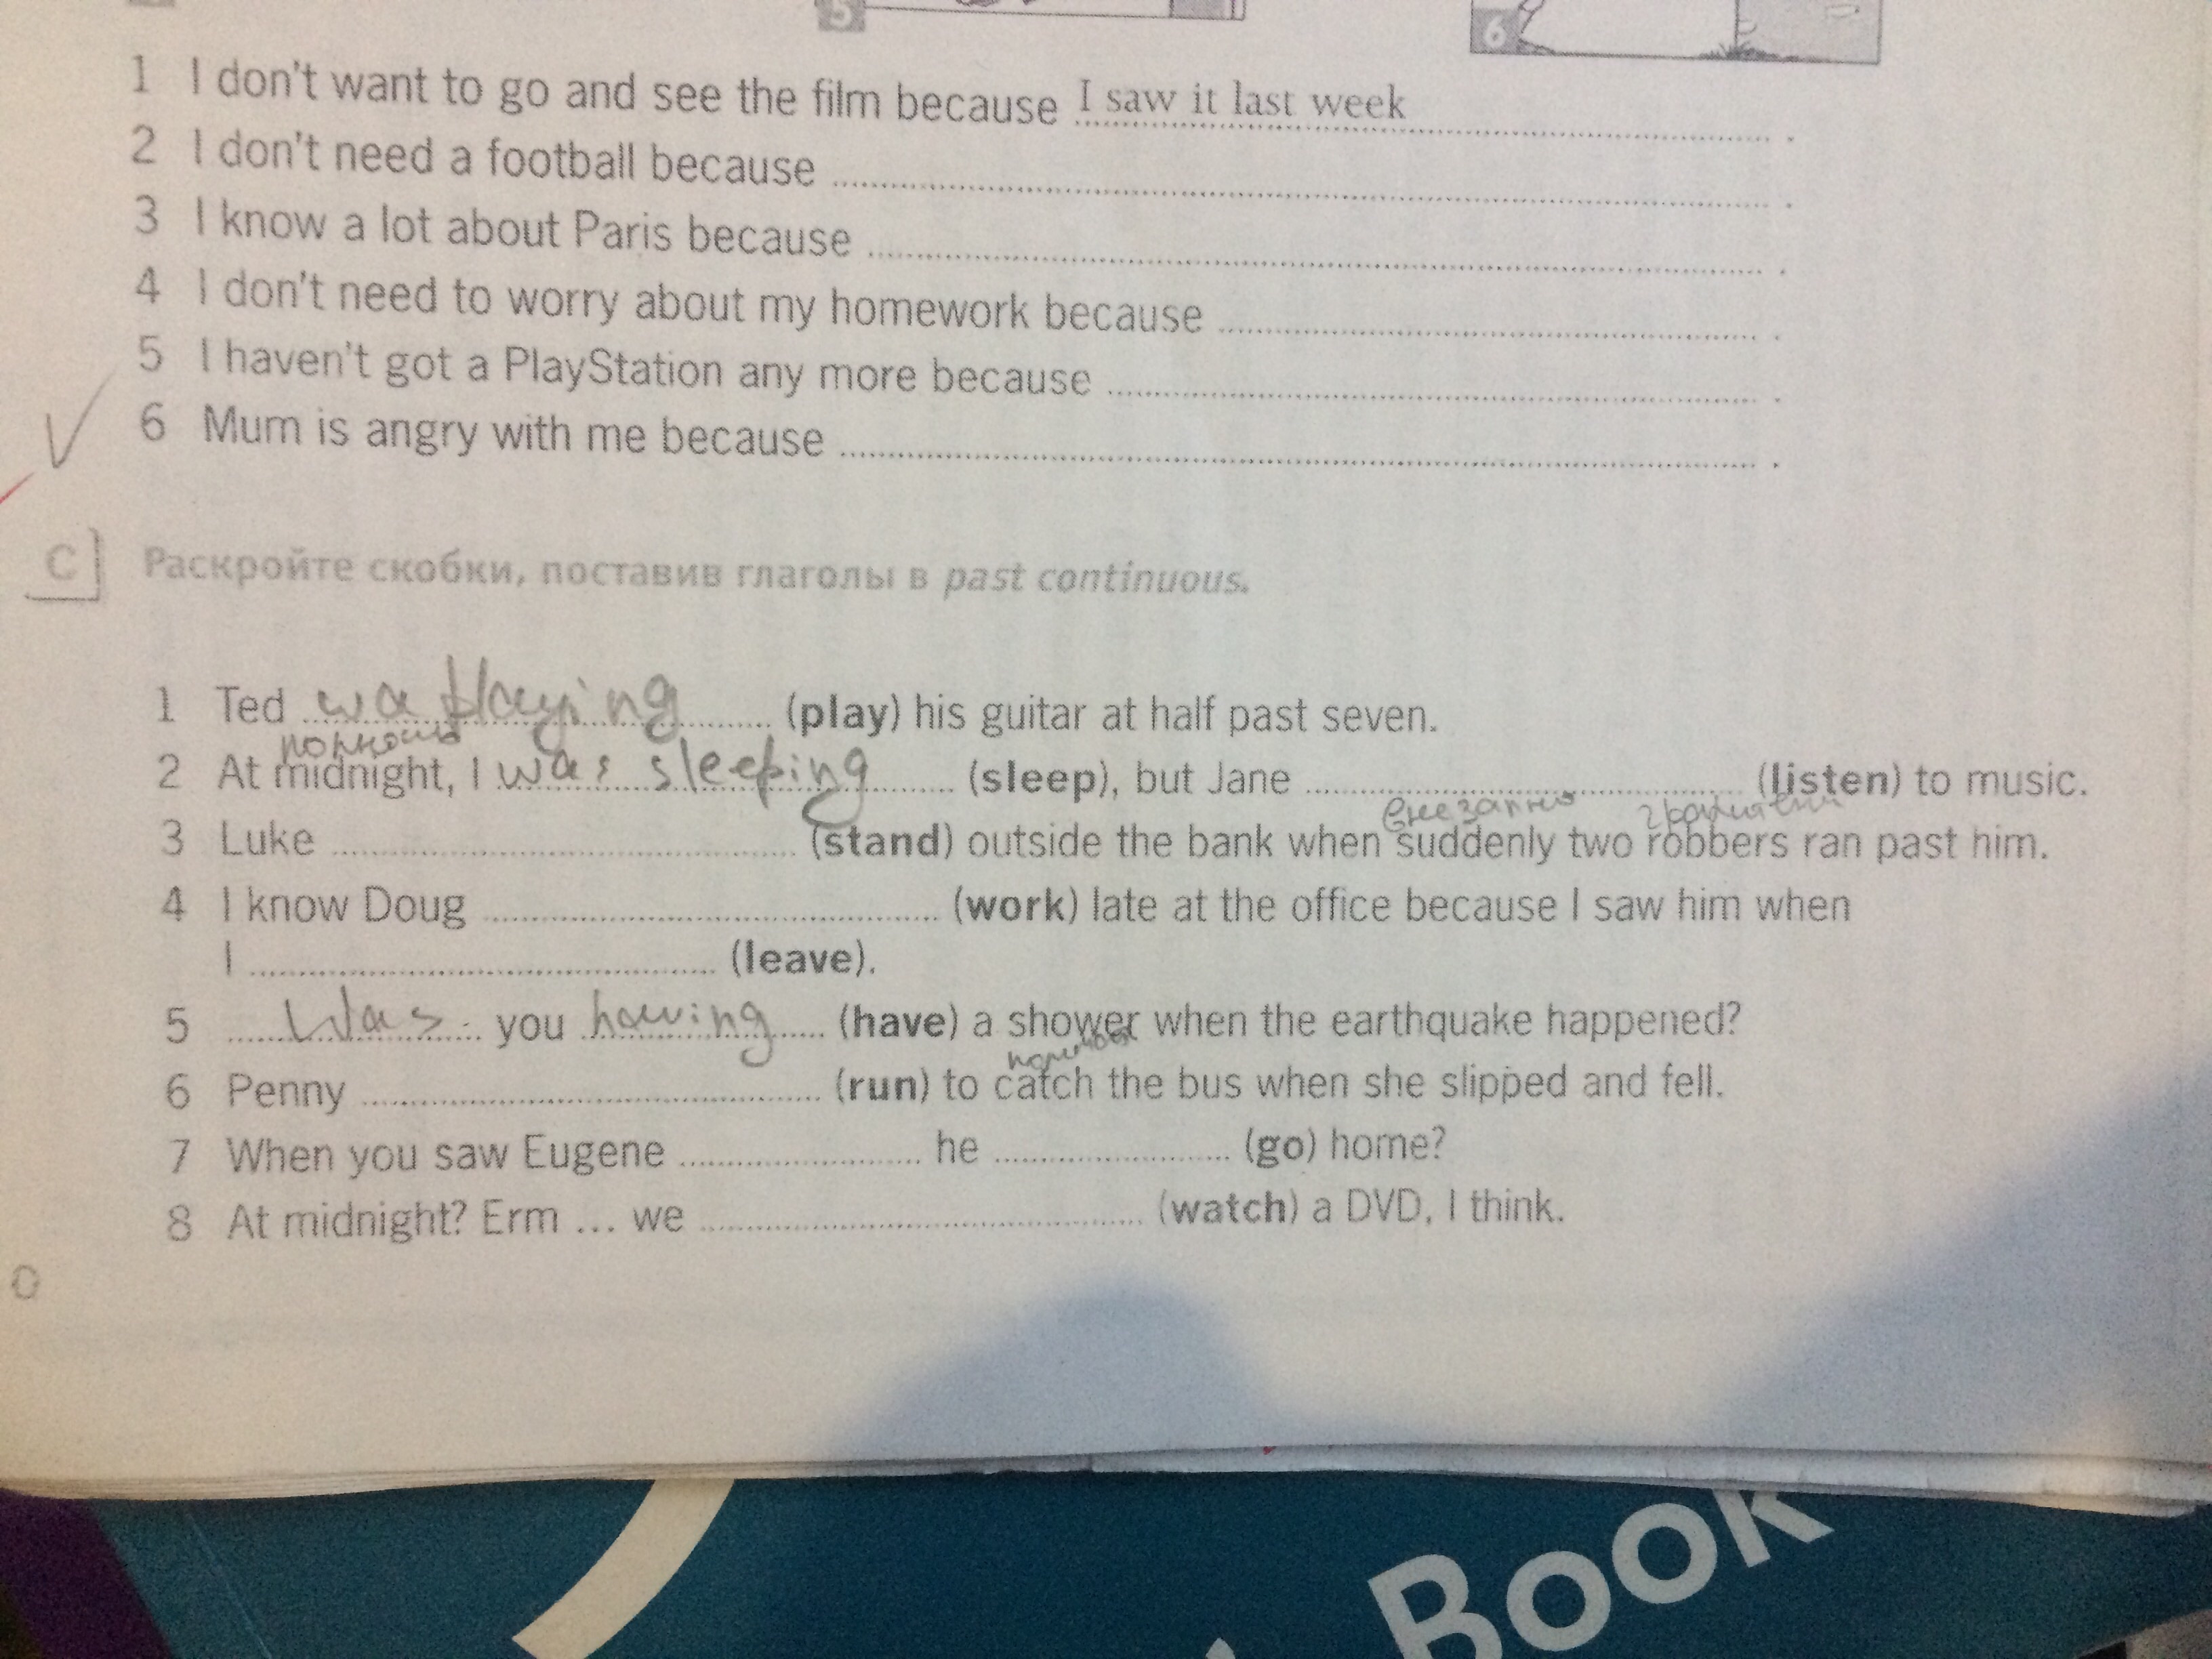 5
6
1 I don't want to go and see the film because I saw it last week .
2 I don't need a football because .
3 I know a lot about Paris because .
4 I don't need to worry about my homework because .
5 I haven't got a PlayStation any more because .
6 Mum is angry with me because .
C Раскройте скобки, поставив глаголы в past continuous.
1 Ted wa playing (play) his guitar at half past seven.
полночь
2 At midnight, I was sleeping (sleep), but Jane (listen) to music.
внезапно
3 Luke (stand) outside the bank when suddenly two robbers ran past him.
4 I know Doug (work) late at the office because I saw him when
I (leave).
5 Was you having (have) a shower when the earthquake happened?
6 Penny (run) to catch the bus when she slipped and fell.
7 When you saw Eugene he (go) home?
8 At midnight? Erm ... we (watch) a DVD, I think.
0
Book